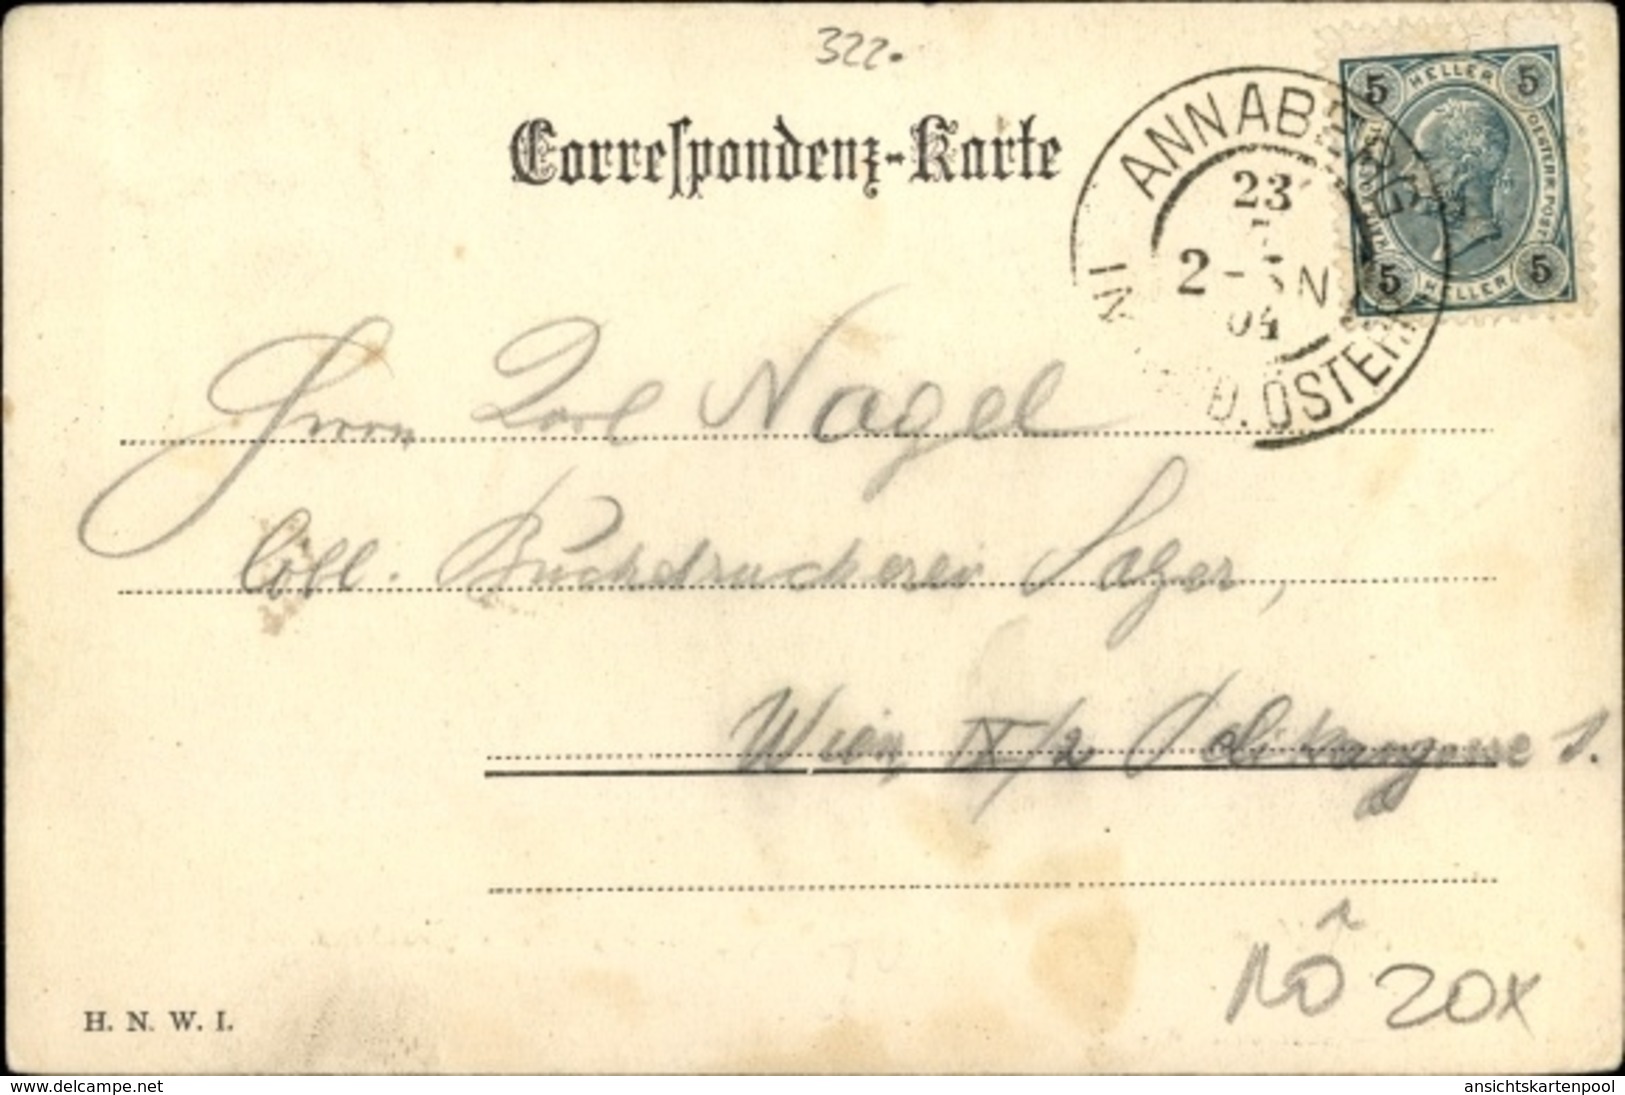 322.
Correspondenz-Karte
ANNABERG
23
2-3 N
04
IN D. ÖSTERR
5 HELLER 5
OESTERR. POST
5 HELLER 5
Herrn Carl Nagel
löbl. Buchdruckerei Sager,
Wien IX/2 Pelikangasse 1.
H. N. W. I.
NÖ 20x
www.delcampe.net
ansichtskartenpool